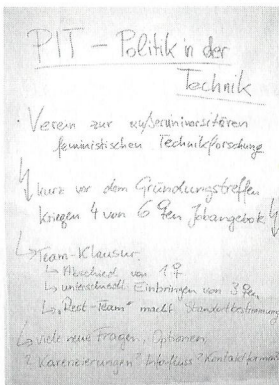 PIT – Politik in der
Technik
• Verein zur außeruniversitären
feministischen Technikforschung
kurz vor dem Gründungstreffen
kriegen 4 von 6 ♀en Jobangebote
↳ Team-Klausur:
↳ Abschied von 1♀
↳ unterschiedl. Einbringen von 3 ♀en
↳ "Rest-Team" macht Standortbestimmung
↳ viele neue Fragen, Optionen
? Karenzierungen? Infofluss? Kontakt